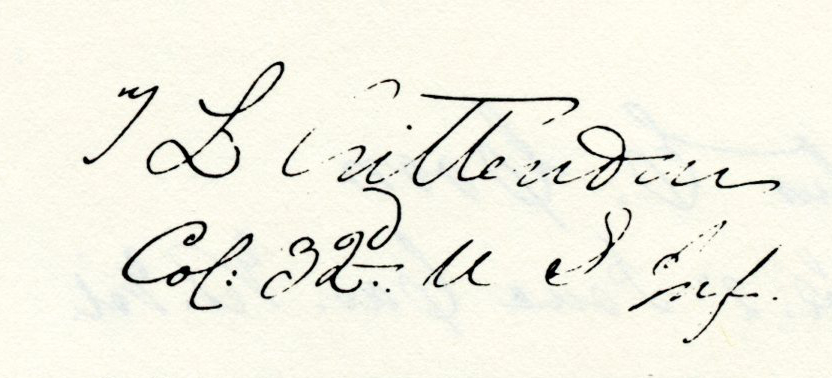 T L Crittenden
Col: 32d. U S Inf.